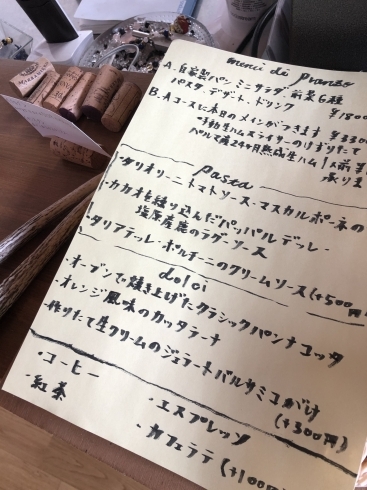 menu di Pranzo
A. 自家製パン ミニサラダ 前菜6種
パスタ、デザート、ドリンク ¥1800
B. Aコースに本日のメインがつきます ¥3300
*手動生ハムスライサーのけずりたて
パルマ産24ヶ月熟成生ハム1人前
承りま
Pasta
・タリオリーニ トマトソース・マスカルポーネの
・カカオを練り込んだパッパルデッレ・
塩原産鹿のラグーソース
・タリアテッレ・ポルチーニのクリームソース(+500円
doloi
・オーブンで焼き上げたクラシックパンナコッタ
・オレンジ風味のカッサターナ
・作りたて生クリームのジェラートバルサミコがけ
(+300円)
・コーヒー
・紅茶
・エスプレッソ
・カフェラテ (+100円)